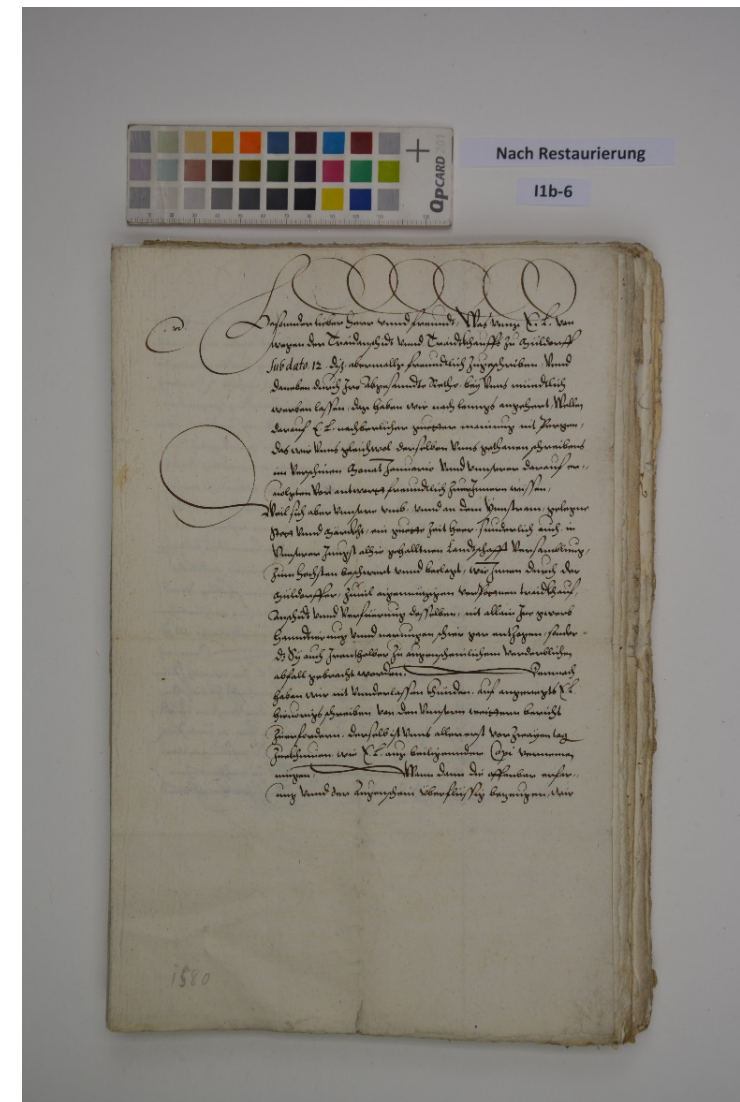 QpCARD 201
Nach Restaurierung
I1b-6
Besonder lieber Herr vnnd freundt, Was vnns E. L. von
wegen der Traidaufschidt vnnd Traidtkhauffs zu
Sub dato 12 diz abermallß freundtlich zugeschriben, Vnnd
daneben durch Ire Abgesanndte Rethe, bey Vnns mündtlich
werben lassen, daz haben wir nach lenngs angehört, Wellen
darauf E. L. nachberlicher guetter mainung nit Pergen,
das wir Vnns gleichwol derselben Vnns gethanen schreibens
im Verschinen Monat Januario Vnnd vnnserer darauf er-
uolgten Vor antwort freundtlich zuerInnern wissen,
Weil sich aber vnnsere vmb, vnnd an dem gelegne
Stett vnnd Märckht, ein guete Zeit heer, sunderlich auch, in
Vnnserer Jungst alhie gehalltnen Landtschafft Versamblung,
Zum höchsten beschwert vnnd beclagt, wie Inen durch der
zuuil aigennüzigen traidkhauf,
vnnd Verfüerung desselben, nit allain Ire gwerb
Hanndtierung vnnd narungen schier gar entzogen, sonder
dz Sy auch Irenthalben zu augenscheinlichem verderblichen
abfall gebracht worden. Demnach
haben wir nit vnnderlassen khünden, auf angeregts E. L.
schreiben von den Vnnsern weittern bericht
Zuerfordern, derselb ist vnns allererst vor zwayen tag
Zuekhumen, wie E. L. auß beiligennder Copi vernemen
mügen. Wann dann die offenbar erfar-
ung vnnd der Augenschein überflüssig bezeugen, wir
1580